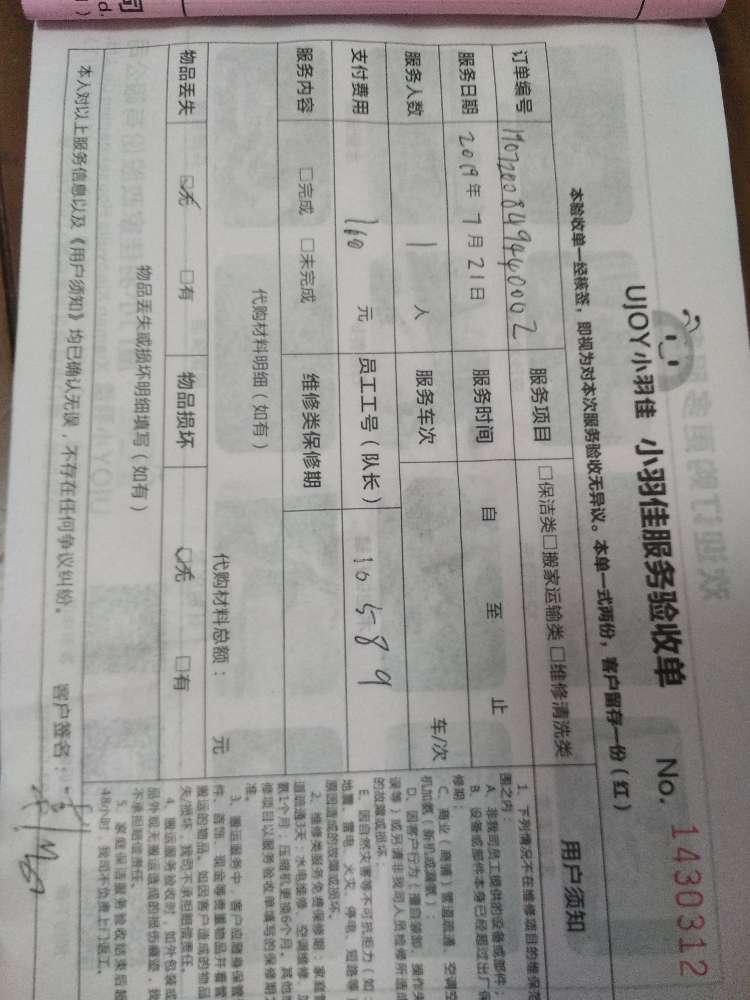 UJOY小羽佳 小羽佳服务验收单 No. 1430312
本验收单一经核签，即视为对本次服务验收无异议。本单一式两份，客户留存一份（红）
订单编号 19072008494440002 服务项目 □保洁类□搬家运输类 □维修清洗类
服务日期 2019年 7月21日 服务时间 自 至 止
服务人数 1 人 服务车次 车/次
支付费用 160 元 员工工号（队长） 10589
服务内容 □完成 □未完成 维修类保修期
代购材料明细（如有） 代购材料总额： 元
物品丢失 □无 □有 物品损坏 □无 □有
物品丢失或损坏明细填写（如有）
本人对以上服务信息以及《用户须知》均已确认无误，不存在任何争议纠纷。 客户签名：
用户须知
1、下列情况不在维修项目的维保范
围之内：
A、非我司员工提供的设备或部件；
B、设备或部件本身已经超过出厂保
修期；
C、商业（商铺）管道疏通、空调空
机加氨（新机或漏氨）；
D、因客户行为（擅自装卸、操作失
误等）或另请非我司人员检修所造成
的故障或损坏；
E、因自然灾害等不可抗拒力（如
地震、雷电、火灾、停电、短路等
原因造成的故障或损坏。
2、维修类服务免费保修期：家庭管
道疏通3天，水电维修、空调维修、加
氨1个月，压缩机更换6个月。其他维
修项目以服务验收单填写的保修期为
准。
3、搬运服务中，客户应随身保管
件、首饰、现金等贵重物品并看管
搬运的物品。如因客户造成的物品
失/损坏，我司不承担赔偿责任。
4、搬运服务验收时，如外包装或
品外观无搬运造成的损伤痕迹，我
不承担赔偿责任。
5、家庭保洁服务验收结束后超
48小时，我司不负责上门返工。